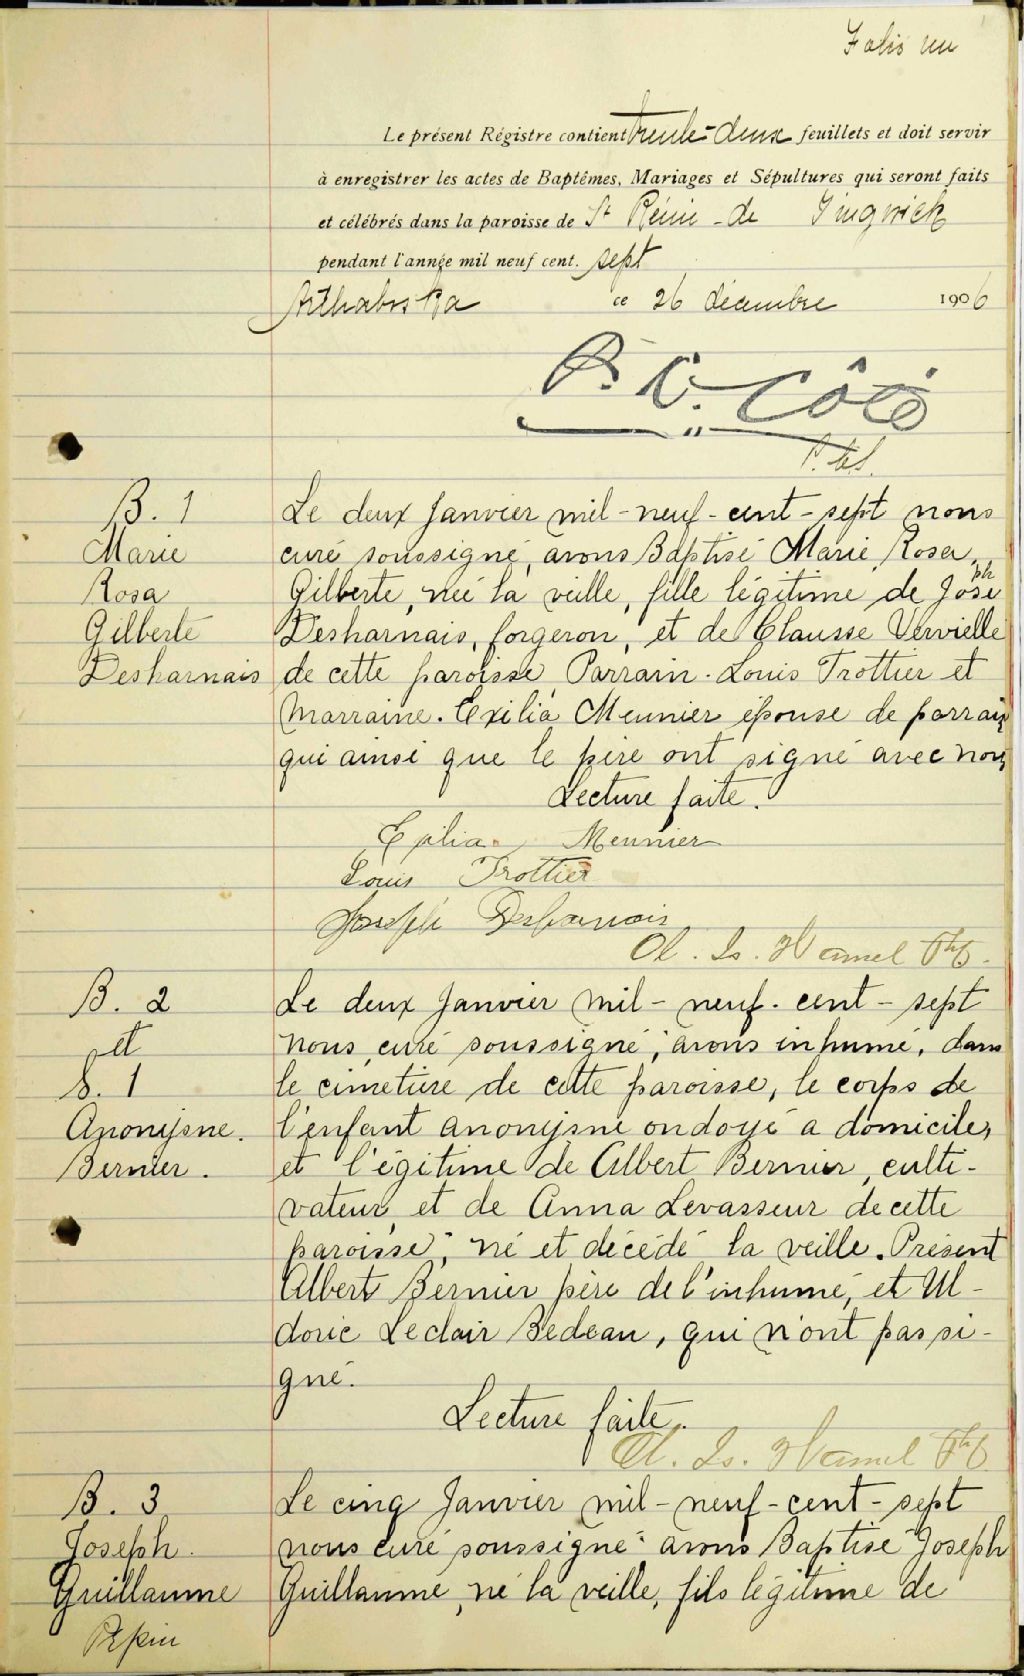 Folio un
Le présent Régistre contient trente-deux feuillets et doit servir
à enregistrer les actes de Baptêmes, Mariages et Sépultures qui seront faits
et célébrés dans la paroisse de St Rémi-de Tingwick
pendant l'année mil neuf cent. sept
Arthabaska ce 26 décembre 1906
P. C. Côté
B. 1
Marie
Rosa
Gilberte
Desharnais
Le deux Janvier mil-neuf-cent-sept nous
curé soussigné, avons Baptisé Marie, Rosa,
Gilberte, née la veille, fille légitime de Joseph
Desharnais, forgeron, et de Clausse Vervielle
de cette paroisse Parrain. Louis Trottier et
Marraine. Exilia Meunier épouse de parrain
qui ainsi que le père ont signé avec nous
Lecture faite.
Exilia Meunier
Louis Trottier
Joseph Desharnais
Ol. Is. Hamel Ptre.
B. 2
et
S. 1
Anonijsne.
Bernier.
Le deux Janvier mil-neuf-cent-sept
nous curé soussigné, avons inhumé, dans
le cimetière de cette paroisse, le corps de
l'enfant anonijsne ondoyé a domicile,
et l'égitime de Albert Bernier, culti-
vateur, et de Anna Levasseur de cette
paroisse, né et décédé la veille. Présent
Albert Bernier père de l'inhumé, et Ul-
doric Leclair Bedeau, qui n'ont pas si-
gné.
Lecture faite.
Ol. Is. Hamel Ptre
B. 3
Joseph
Guillaume
Pepin
Le cinq Janvier mil-neuf-cent-sept
nous curé soussigné avons Baptisé Joseph
Guillaume, né la veille, fils légitime de